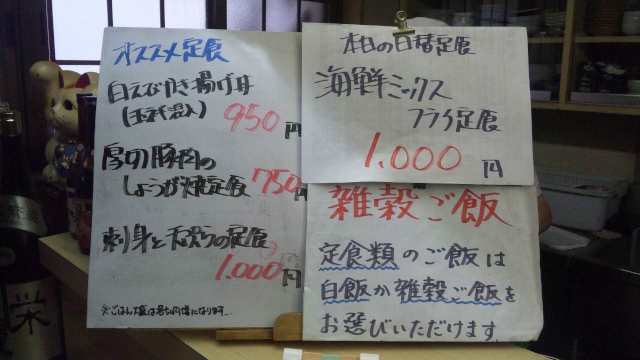 オススメ定食
白えびかき揚げ丼
(玉子混入) 950円
厚切豚肉の
しょうが焼定食 750円
刺身と天ぷらの定食
1.000円
本日の日替定食
海鮮ミックス
フライ定食
1.000円
雑穀ご飯
定食類のご飯は
白飯か雑穀ご飯を
お選びいただけます.
栄